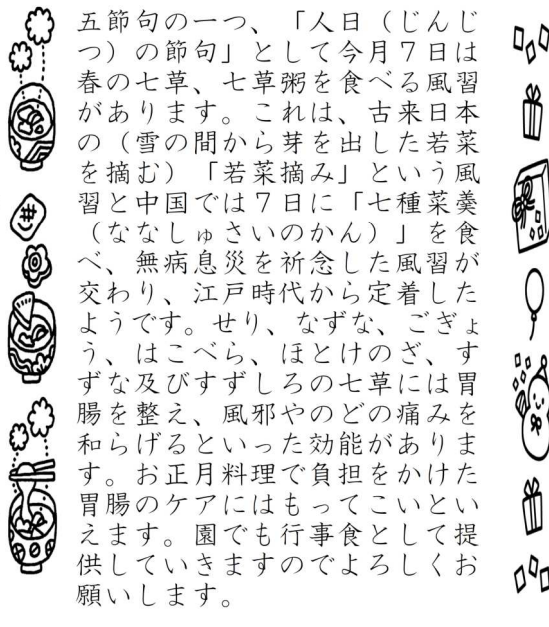 五節句の一つ、「人日（じんじ
つ）の節句」として今月７日は
春の七草、七草粥を食べる風習
があります。これは、古来日本
の（雪の間から芽を出した若菜
を摘む）「若菜摘み」という風
習と中国では７日に「七種菜羹
（ななしゅさいのかん）」を食
べ、無病息災を祈念した風習が
交わり、江戸時代から定着した
ようです。せり、なずな、ごぎょ
う、はこべら、ほとけのざ、す
ずな及びすずしろの七草には胃
腸を整え、風邪やのどの痛みを
和らげるといった効能がありま
す。お正月料理で負担をかけた
胃腸のケアにはもってこいとい
えます。園でも行事食として提
供していきますのでよろしくお
願いします。